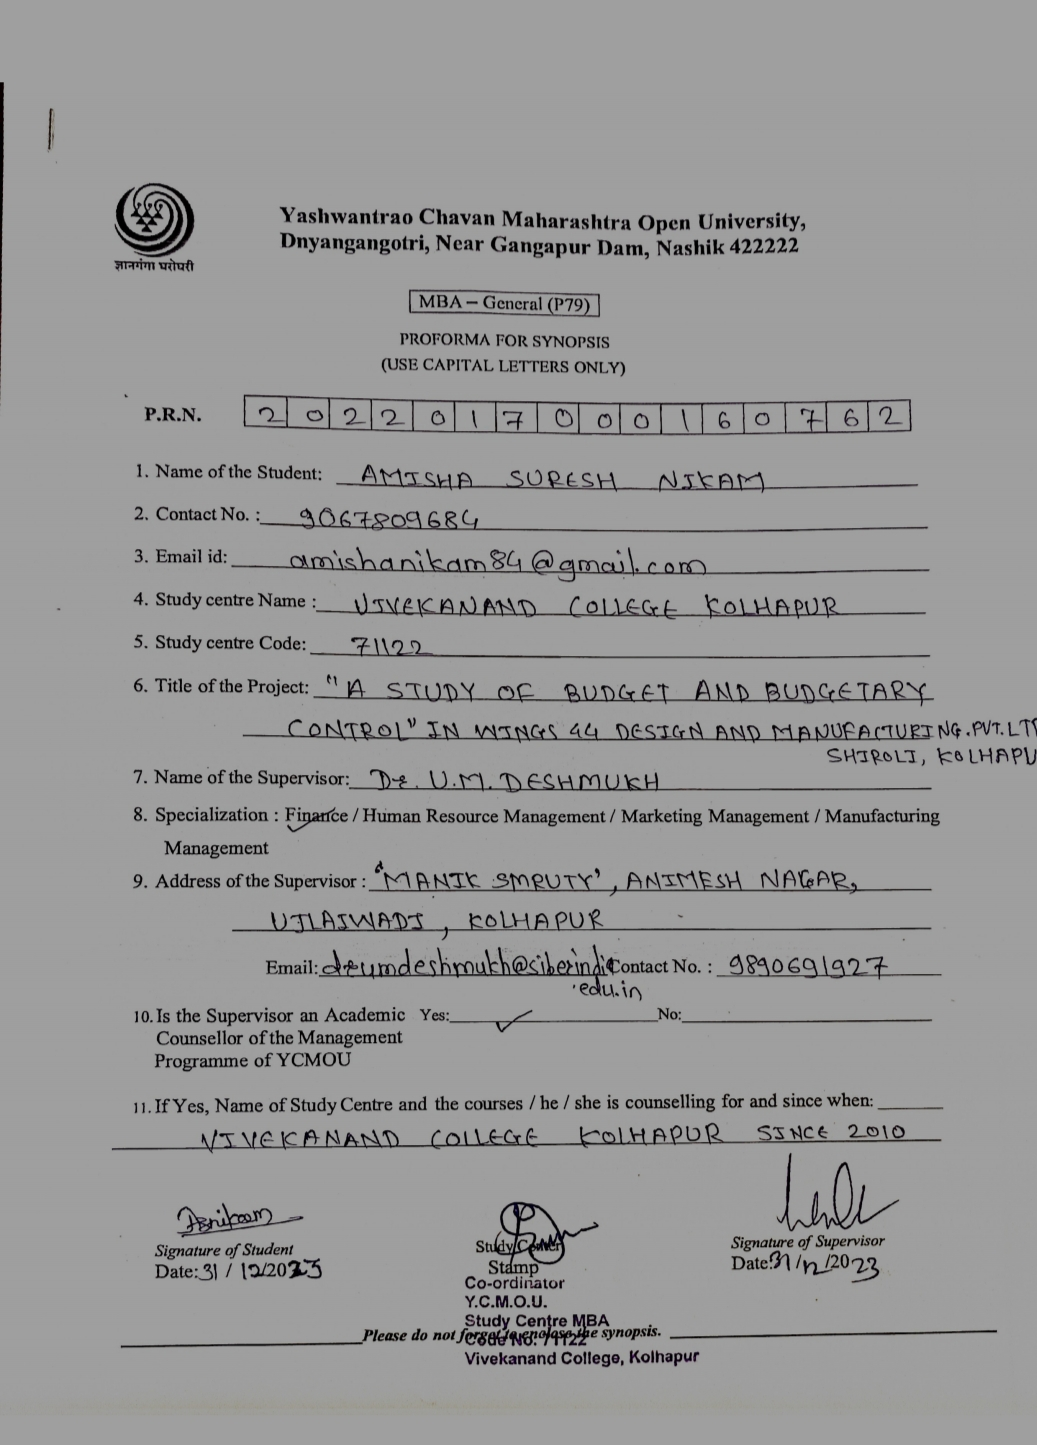 ज्ञानगंगा घरोघरी
Yashwantrao Chavan Maharashtra Open University,
Dnyangangotri, Near Gangapur Dam, Nashik 422222
MBA – General (P79)
PROFORMA FOR SYNOPSIS
(USE CAPITAL LETTERS ONLY)
P.R.N. 2 0 2 2 0 1 7 0 0 0 1 6 0 7 6 2
1. Name of the Student: AMISHA SURESH NIKAM
2. Contact No. : 9067809684
3. Email id: amishanikam84@gmail.com
4. Study centre Name : VIVEKANAND COLLEGE KOLHAPUR
5. Study centre Code: 71122
6. Title of the Project: "A STUDY OF BUDGET AND BUDGETARY
CONTROL" IN WINGS 44 DESIGN AND MANUFACTURING.PVT.LT
SHIROLI, KOLHAPU
7. Name of the Supervisor: Dr. U.M. DESHMUKH
8. Specialization : Finance / Human Resource Management / Marketing Management / Manufacturing
Management
9. Address of the Supervisor : 'MANIK SMRUTY', ANIMESH NAGAR,
UJLAIWADI, KOLHAPUR
Email: drumdeshmukh@siberindia Contact No. : 9890691927
.edu.in
10. Is the Supervisor an Academic Yes: ✓ No:
Counsellor of the Management
Programme of YCMOU
11. If Yes, Name of Study Centre and the courses / he / she is counselling for and since when:
VIVEKANAND COLLEGE KOLHAPUR SINCE 2010
Signature of Student
Date: 31 / 12/2023
Study Center
Stamp
Signature of Supervisor
Date: 31/12/2023
Co-ordinator
Y.C.M.O.U.
Study Centre MBA
Please do not forget to enclose the synopsis.
Code No. 71122
Vivekanand College, Kolhapur